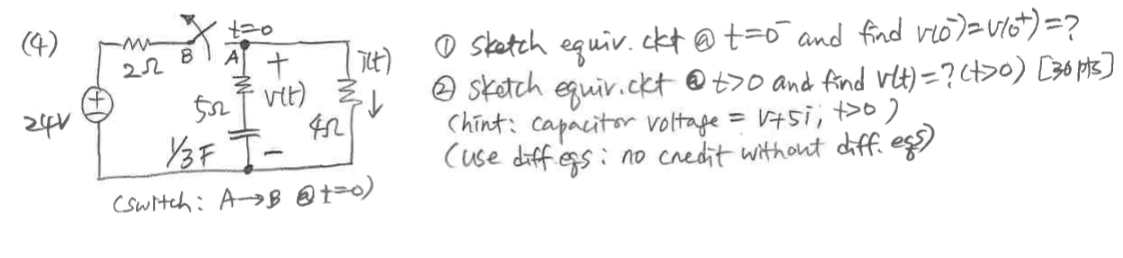 (4)
t=0
2Ω
B
A
+
i(t)
① sketch equiv. ckt @ t=0⁻ and find v(0⁻)=v(0⁺)=?
② sketch equiv.ckt @ t>0 and find v(t)=? (t>0) [30 pts]
(hint: capacitor voltage = v+5i, t>0)
(use diff.eqs: no credit without diff. eqs)
+
24V
5Ω
v(t)
4Ω
1/3 F
-
(switch: A→B @ t=0)